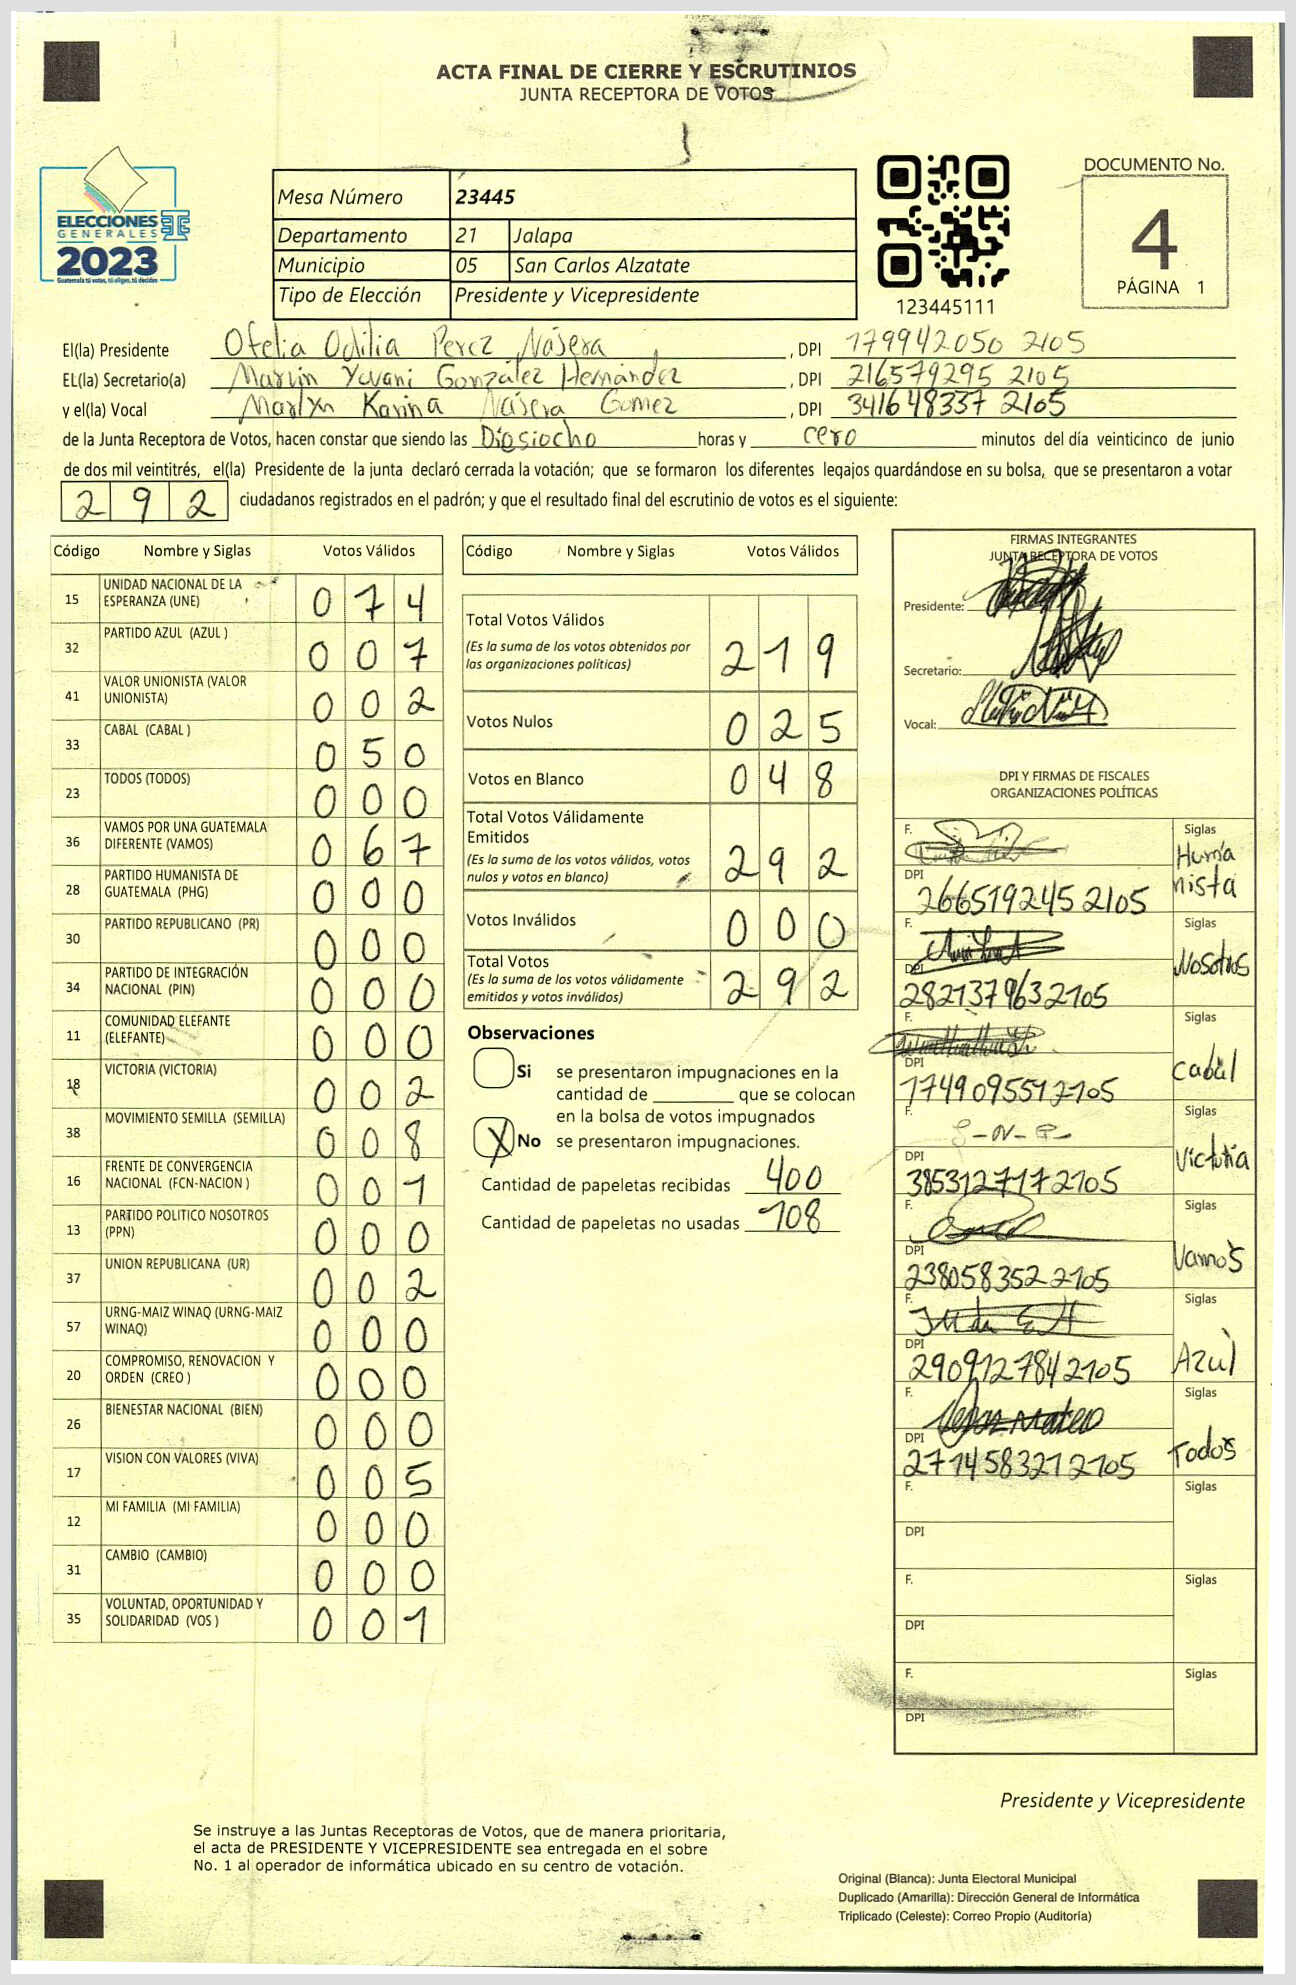 ACTA FINAL DE CIERRE Y ESCRUTINIOS
JUNTA RECEPTORA DE VOTOS
ELECCIONES
GENERALES
2023
Guatemala tú votas, tú eliges, tú decides
Mesa Número 23445
Departamento 21 Jalapa
Municipio 05 San Carlos Alzatate
Tipo de Elección Presidente y Vicepresidente
123445111
DOCUMENTO No.
4
PÁGINA 1
El(la) Presidente Ofelia Odilia Perez Nájera , DPI 179942050 2105
EL(la) Secretario(a) Marlin Yovani González Hernández , DPI 216579295 2105
y el(la) Vocal Marlyn Karina Nájera Gomez , DPI 341648337 2105
de la Junta Receptora de Votos, hacen constar que siendo las Diosiocho horas y cero minutos del día veinticinco de junio
de dos mil veintitrés, el(la) Presidente de la junta declaró cerrada la votación; que se formaron los diferentes legajos quardándose en su bolsa, que se presentaron a votar
292 ciudadanos registrados en el padrón; y que el resultado final del escrutinio de votos es el siguiente:
Código Nombre y Siglas Votos Válidos
15 UNIDAD NACIONAL DE LA ESPERANZA (UNE) 0 7 4
32 PARTIDO AZUL (AZUL ) 0 0 7
41 VALOR UNIONISTA (VALOR UNIONISTA) 0 0 2
33 CABAL (CABAL ) 0 5 0
23 TODOS (TODOS) 0 0 0
36 VAMOS POR UNA GUATEMALA DIFERENTE (VAMOS) 0 6 7
28 PARTIDO HUMANISTA DE GUATEMALA (PHG) 0 0 0
30 PARTIDO REPUBLICANO (PR) 0 0 0
34 PARTIDO DE INTEGRACIÓN NACIONAL (PIN) 0 0 0
11 COMUNIDAD ELEFANTE (ELEFANTE) 0 0 0
18 VICTORIA (VICTORIA) 0 0 2
38 MOVIMIENTO SEMILLA (SEMILLA) 0 0 8
16 FRENTE DE CONVERGENCIA NACIONAL (FCN-NACION ) 0 0 1
13 PARTIDO POLITICO NOSOTROS (PPN) 0 0 0
37 UNION REPUBLICANA (UR) 0 0 2
57 URNG-MAIZ WINAQ (URNG-MAIZ WINAQ) 0 0 0
20 COMPROMISO, RENOVACION Y ORDEN (CREO ) 0 0 0
26 BIENESTAR NACIONAL (BIEN) 0 0 0
17 VISION CON VALORES (VIVA) 0 0 5
12 MI FAMILIA (MI FAMILIA) 0 0 0
31 CAMBIO (CAMBIO) 0 0 0
35 VOLUNTAD, OPORTUNIDAD Y SOLIDARIDAD (VOS ) 0 0 1
Código Nombre y Siglas Votos Válidos
Total Votos Válidos 2 1 9
(Es la suma de los votos obtenidos por
las organizaciones políticas)
Votos Nulos 0 2 5
Votos en Blanco 0 4 8
Total Votos Válidamente
Emitidos 2 9 2
(Es la suma de los votos válidos, votos
nulos y votos en blanco)
Votos Inválidos 0 0 0
Total Votos 2 9 2
(Es la suma de los votos válidamente
emitidos y votos inválidos)
Observaciones
Si se presentaron impugnaciones en la
cantidad de ________ que se colocan
en la bolsa de votos impugnados
X No se presentaron impugnaciones.
Cantidad de papeletas recibidas 400
Cantidad de papeletas no usadas 108
FIRMAS INTEGRANTES
JUNTA RECEPTORA DE VOTOS
Presidente:
Secretario:
Vocal:
DPI Y FIRMAS DE FISCALES
ORGANIZACIONES POLÍTICAS
F. Siglas Humanista
DPI 266519245 2105
F. Siglas Nosotros
DPI 282137963 2105
F. Siglas Cabal
DPI 174909551 2105
F. Siglas Victoria
DPI 385312717 2105
F. Siglas Vamos
DPI 238058352 2105
F. Siglas Azul
DPI 290912784 2105
F. Siglas Todos
DPI 271458321 2105
F. Siglas
DPI
F. Siglas
DPI
F. Siglas
DPI
Presidente y Vicepresidente
Se instruye a las Juntas Receptoras de Votos, que de manera prioritaria,
el acta de PRESIDENTE Y VICEPRESIDENTE sea entregada en el sobre
No. 1 al operador de informática ubicado en su centro de votación.
Original (Blanca): Junta Electoral Municipal
Duplicado (Amarilla): Dirección General de Informática
Triplicado (Celeste): Correo Propio (Auditoría)